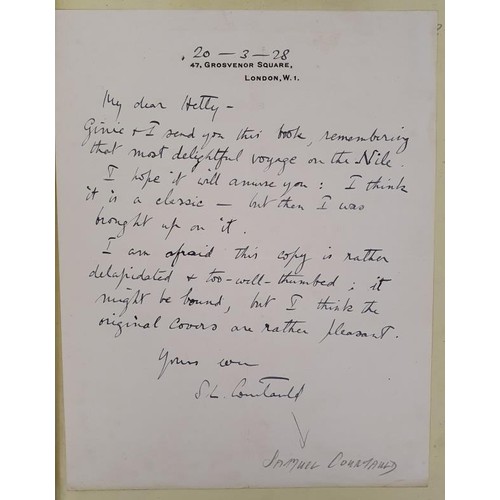 20 - 3 - 28
47, GROSVENOR SQUARE,
LONDON, W.1.
My dear Hetty -
Ginie & I send you this book, remembering
that most delightful voyage on the Nile.
I hope it will amuse you: I think
it is a classic - but then I was
brought up on it.
I am afraid this copy is rather
delapidated & too-well-thumbed; it
might be bound, but I think the
original covers are rather pleasant.
Yours
S. L. Courtauld
SAMUEL COURTAULD